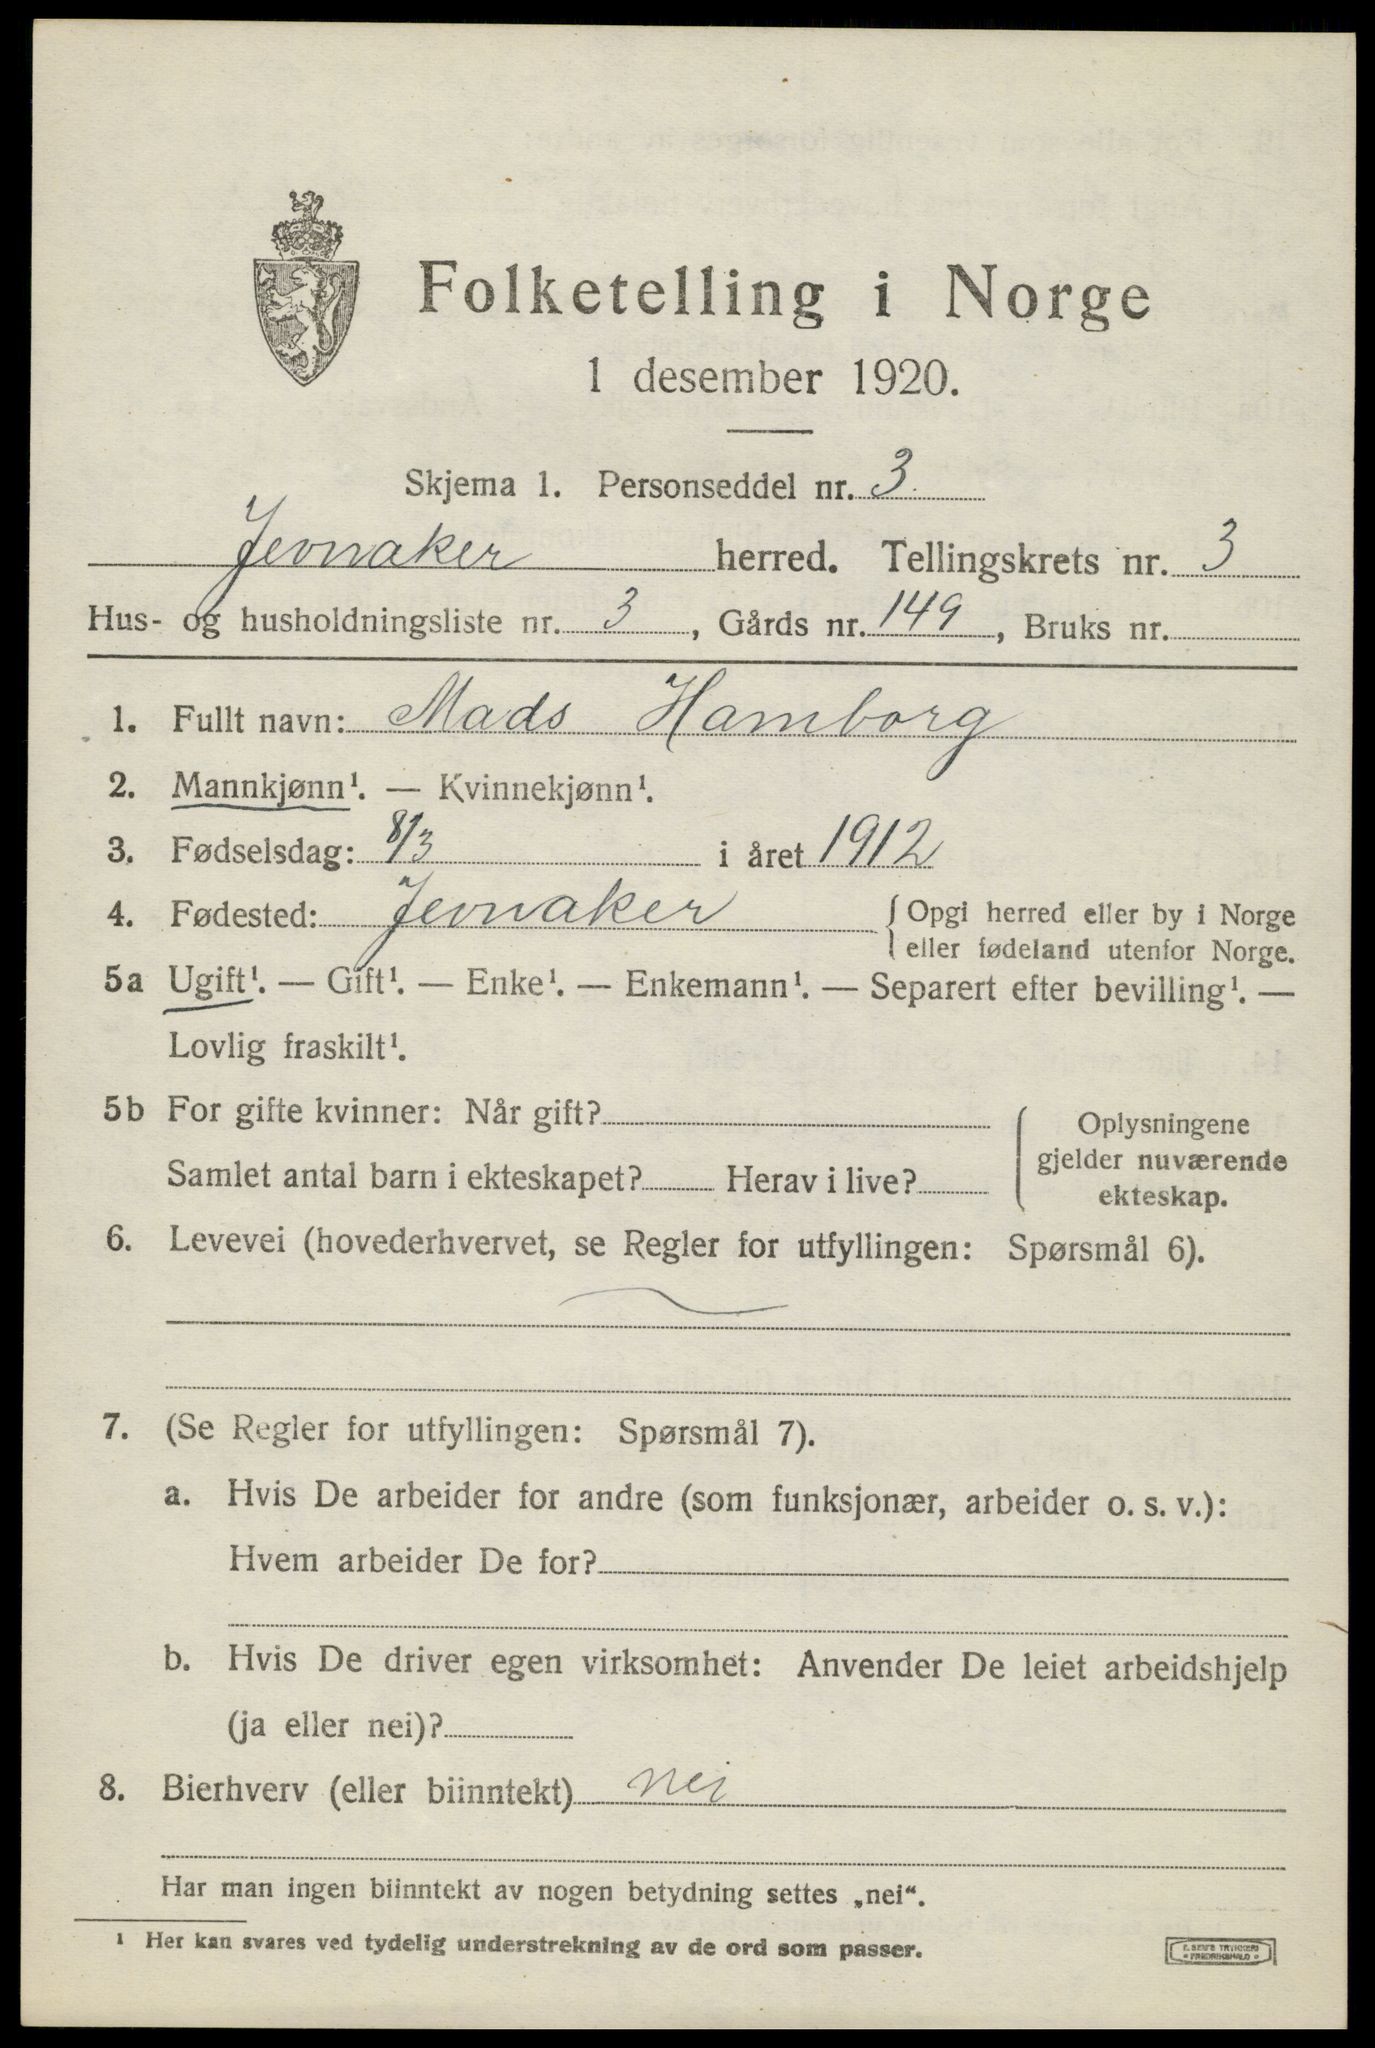 Folketelling i Norge
1 desember 1920.
Skjema 1. Personseddel nr. 3
Jevnaker herred. Tellingskrets nr. 3
Hus- og husholdningsliste nr. 3, Gårds nr. 149, Bruks nr.
1. Fullt navn: Mads Hamborg
2. Mannkjønn¹. — Kvinnekjønn¹.
3. Fødselsdag: 8/3 i året 1912
4. Fødested: Jevnaker
{Opgi herred eller by i Norge
eller fødeland utenfor Norge.
5a Ugift¹. — Gift¹. — Enke¹. — Enkemann¹. — Separert efter bevilling¹. —
Lovlig fraskilt¹.
5b For gifte kvinner: Når gift?
Samlet antal barn i ekteskapet? Herav i live?
Oplysningene
gjelder nuværende
ekteskap.
6. Levevei (hovederhvervet, se Regler for utfyllingen: Spørsmål 6).
7. (Se Regler for utfyllingen: Spørsmål 7).
a. Hvis De arbeider for andre (som funksjonær, arbeider o. s. v.):
Hvem arbeider De for?
b. Hvis De driver egen virksomhet: Anvender De leiet arbeidshjelp
(ja eller nei)?
8. Bierhverv (eller biinntekt) nei
Har man ingen biinntekt av nogen betydning settes „nei“.
¹ Her kan svares ved tydelig understrekning av de ord som passer.
E. SEM'S TRYKKERI
FREDRIKSHALD